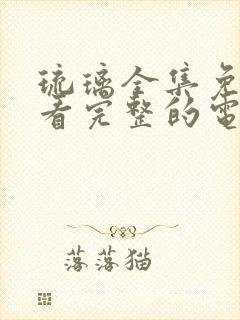 琉璃全集免
看完整的電
落落猫